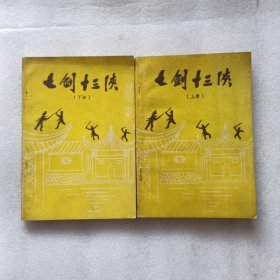 七剑十三侠
(下册)
七剑十三侠
(上册)